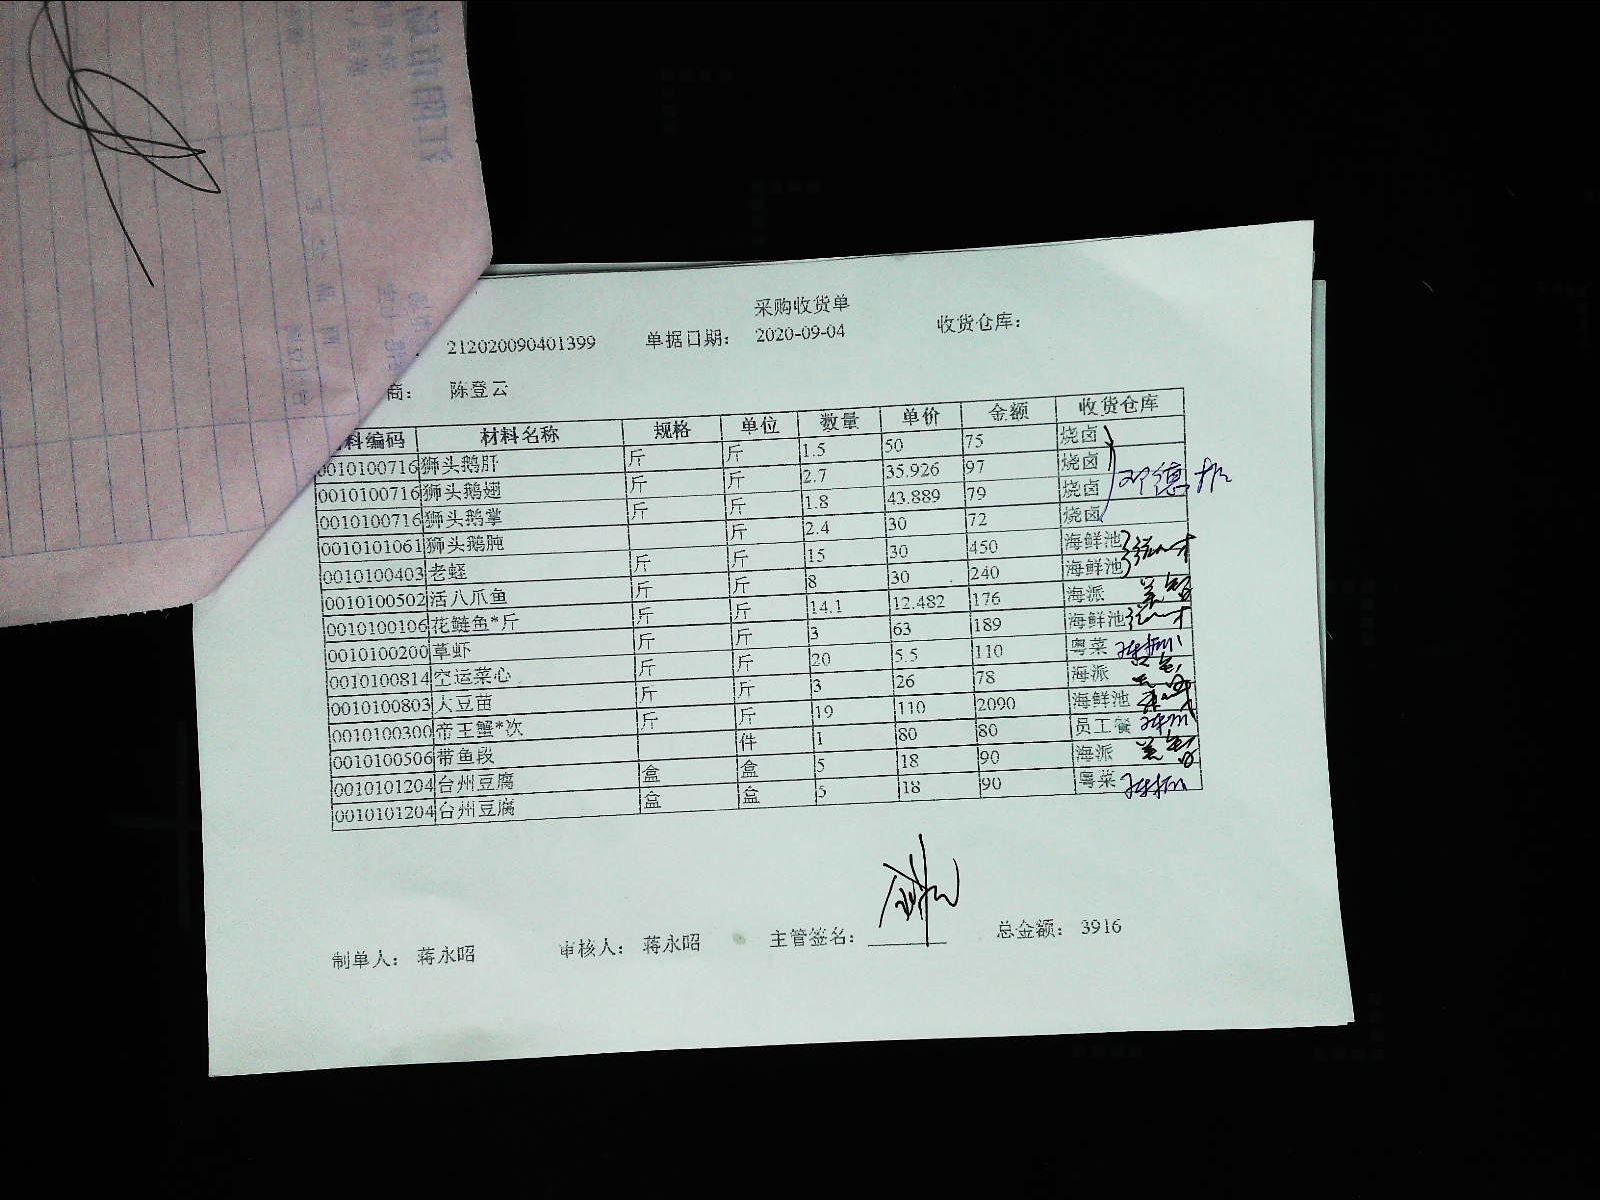 采购收货单
212020090401399 单据日期: 2020-09-04 收货仓库:
商: 陈登云
料编码 材料名称 规格 单位 数量 单价 金额 收货仓库
0010100716 狮头鹅肝 斤 斤 1.5 50 75 烧卤
0010100716 狮头鹅翅 斤 斤 2.7 35.926 97 烧卤
0010100716 狮头鹅掌 斤 斤 1.8 43.889 79 烧卤
0010101061 狮头鹅肫 斤 2.4 30 72 烧卤
0010100403 老蛏 斤 斤 15 30 450 海鲜池
0010100502 活八爪鱼 斤 斤 8 30 240 海鲜池
0010100106 花鲢鱼*斤 斤 斤 14.1 12.482 176 海派
0010100200 草虾 斤 斤 3 63 189 海鲜池
0010100814 空运菜心 斤 斤 20 5.5 110 粤菜
0010100803 大豆苗 斤 斤 3 26 78 海派
0010100300 帝王蟹*次 斤 斤 19 110 2090 海鲜池
0010100506 带鱼段 件 1 80 80 员工餐
0010101204 台州豆腐 盒 盒 5 18 90 海派
0010101204 台州豆腐 盒 盒 5 18 90 粤菜
制单人: 蒋永昭 审核人: 蒋永昭 主管签名: 总金额: 3916